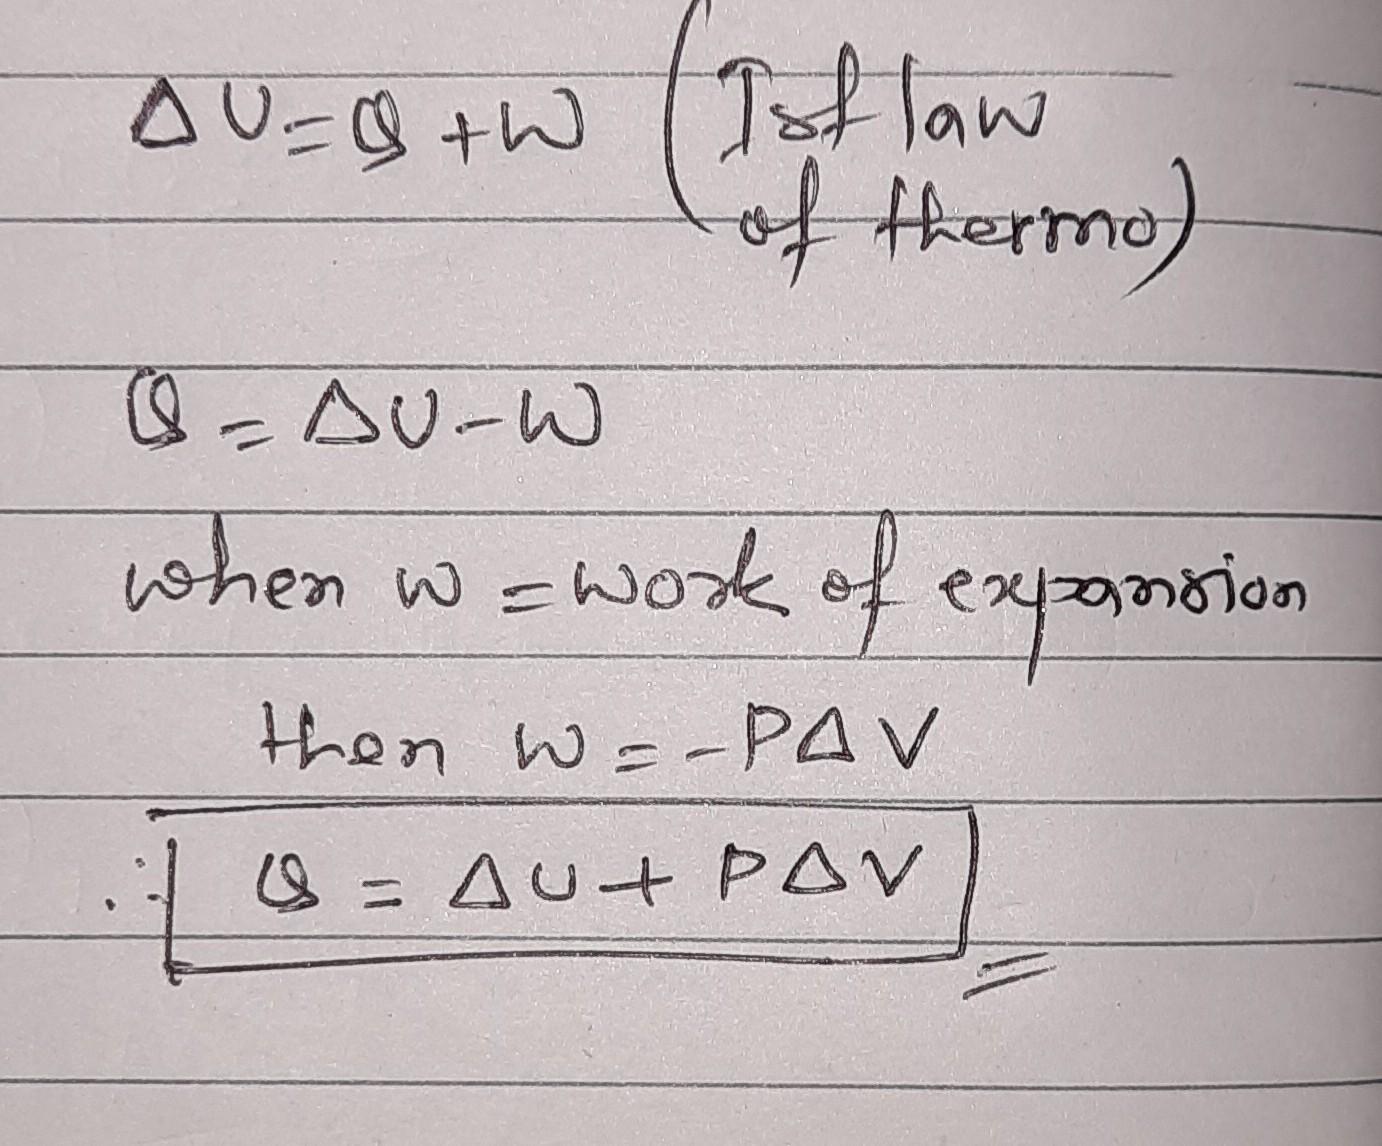 ΔU=Q+W (Ist law
of thermo)
Q=ΔU-W
when w=work of expansion
then w=-PΔV
∴ Q=ΔU+PΔV